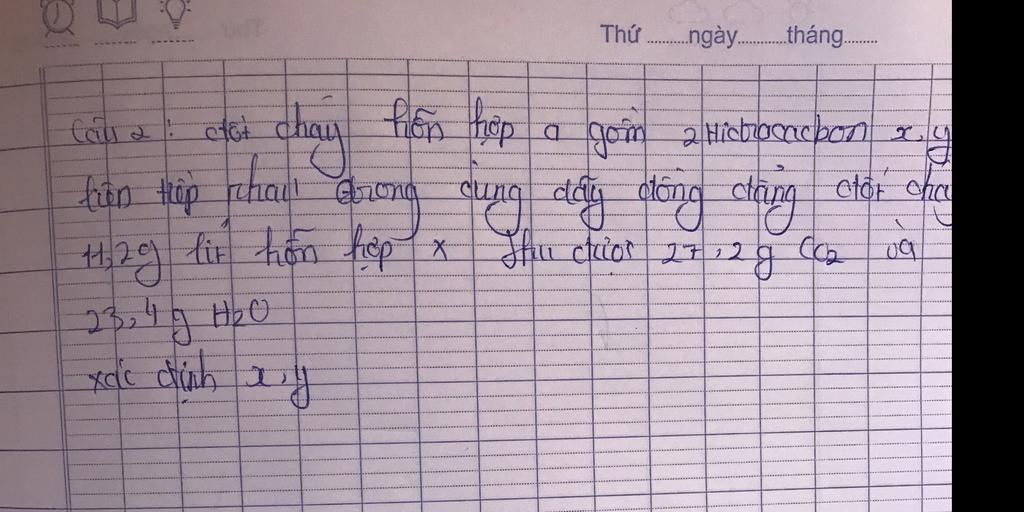 Thứ ........ngày..........tháng........
Câu 2: đốt cháy hỗn hợp a gồm 2 Hiđrocacbon x, y
liên tiếp nhau trong cùng dãy đồng đẳng đốt chá
11,2g lít hỗn hợp x thu được 27,2g CO2 và
23,4g H2O
xác định x, y